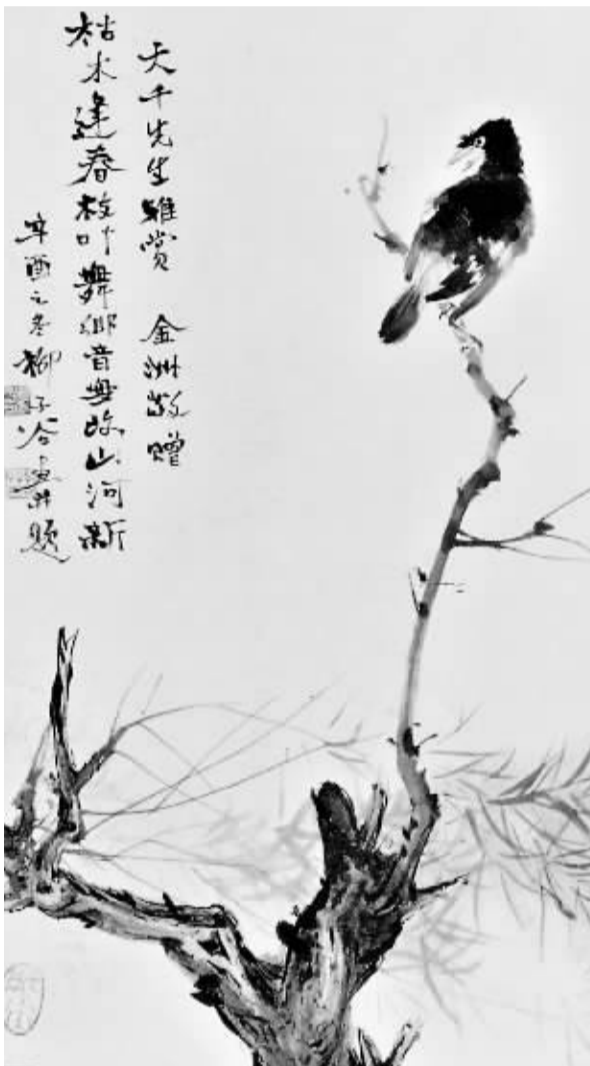 大千先生雅赏 金洲敬赠
枯木逢春枝叶舞鄉音無改山河新
辛酉之冬柳子谷画并题